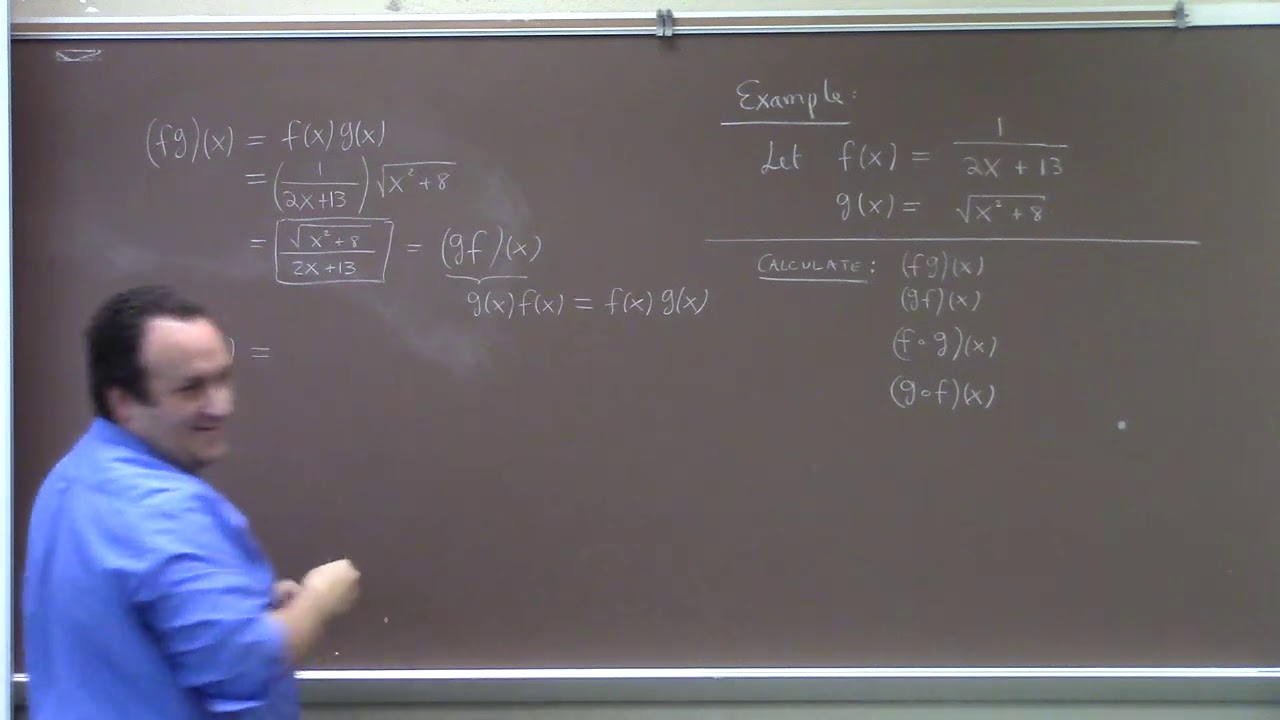 (fg)(x) = f(x) g(x)
= (1/(2x+13)) √(x²+8)
= √(x²+8)/(2x+13) = (gf)(x)
g(x) f(x) = f(x) g(x)
) =
Example:
Let f(x) = 1/(2x+13)
g(x) = √(x²+8)
CALCULATE: (fg)(x)
(gf)(x)
(f∘g)(x)
(g∘f)(x)